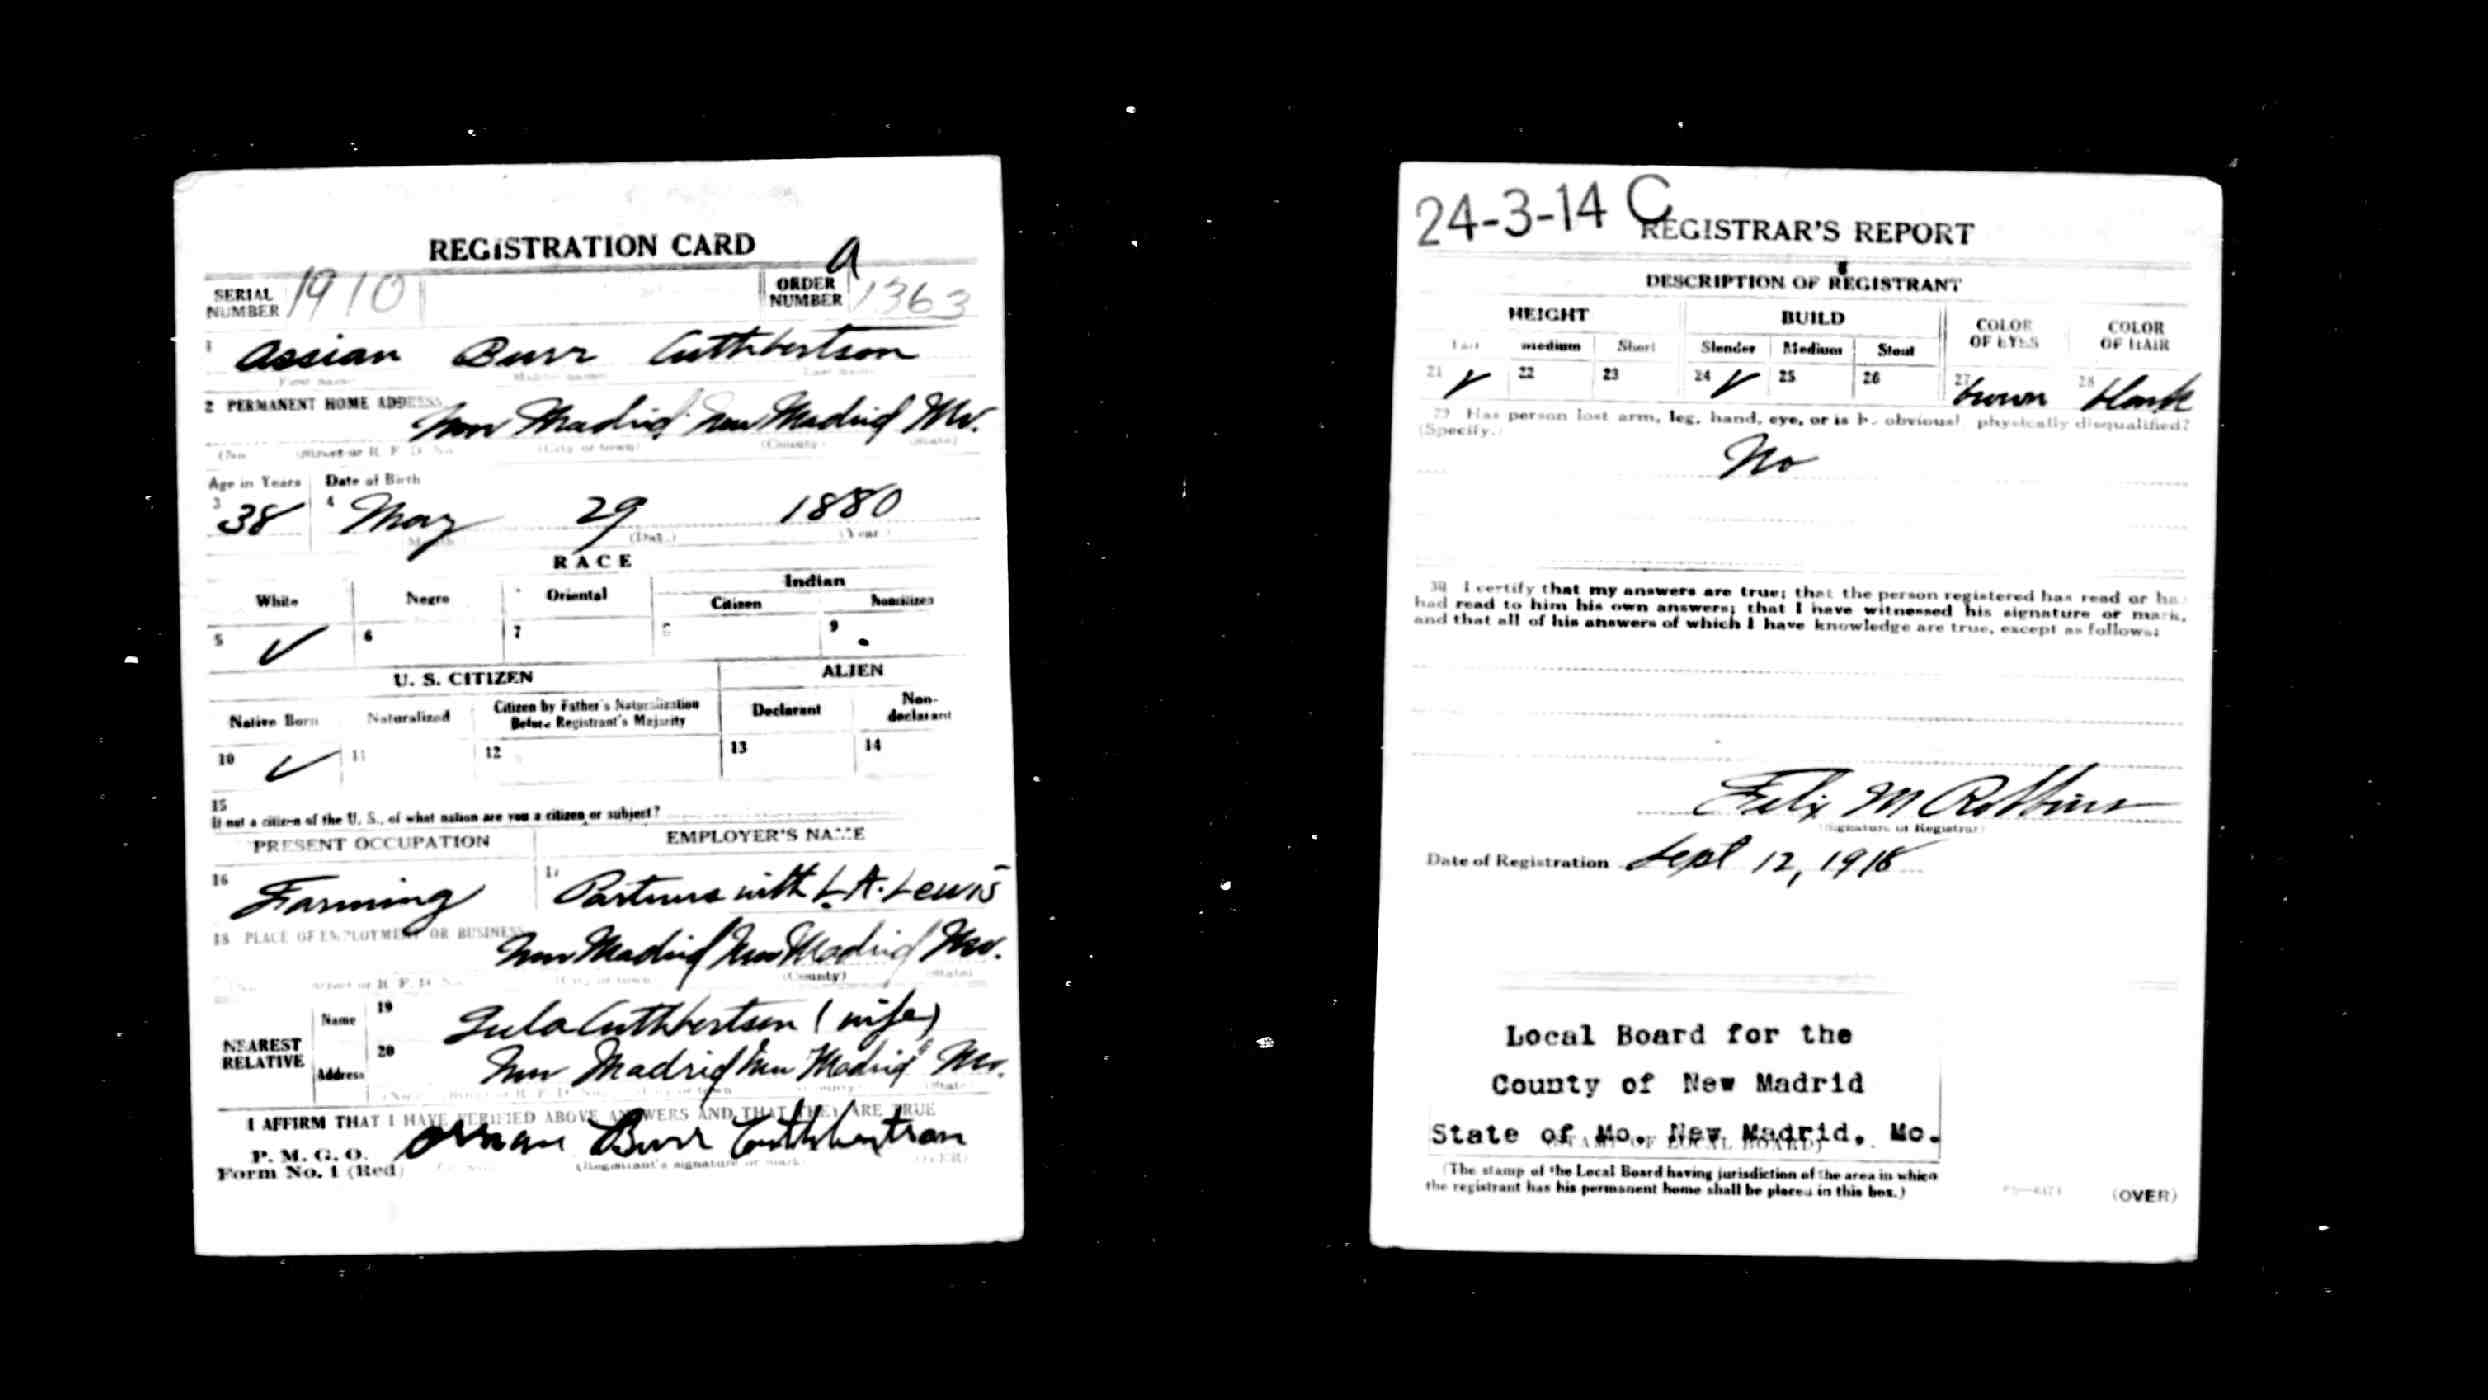 REGISTRATION CARD
SERIAL NUMBER 1910 ORDER NUMBER a 1363
1 Assian Burr Cuthbertson
First name Middle name Last name
2 PERMANENT HOME ADDRESS
New Madrid New Madrid Mo.
(No. (Street or R. F. D. No. (City or town) (County) (State)
Age in Years Date of Birth
3 38 4 May 29 1880
Month (Day.) (Year)
RACE
White Negro Oriental Indian
Citizen Noncitizen
5 ✓ 6 7 8 9
U. S. CITIZEN ALIEN
Native Born Naturalized Citizen by Father's Naturalization Before Registrant's Majority Declarant Non-declarant
10 ✓ 11 12 13 14
15
If not a citizen of the U. S., of what nation are you a citizen or subject?
PRESENT OCCUPATION EMPLOYER'S NAME
16 Farming 17 Partners with L.A. Lewis
18 PLACE OF EMPLOYMENT OR BUSINESS
New Madrid New Madrid Mo.
(No. Street or R. F. D. No. (City or town) (County) (State)
NEAREST RELATIVE
Name 19 Lula Cuthbertson (wife)
Address 20 New Madrid New Madrid Mo.
I AFFIRM THAT I HAVE VERIFIED ABOVE ANSWERS AND THAT THEY ARE TRUE
P. M. G. O.
Form No. 1 (Red) Burr Cuthbertson
(Registrant's signature or mark) (OVER)
24-3-14 C
REGISTRAR'S REPORT
DESCRIPTION OF REGISTRANT
HEIGHT BUILD COLOR OF EYES COLOR OF HAIR
Tall Medium Short Slender Medium Stout
21 ✓ 22 23 24 ✓ 25 26 27 brown 28 black
29 Has person lost arm, leg, hand, eye, or is he obviously physically disqualified?
(Specify.)
No
30 I certify that my answers are true; that the person registered has read or has
had read to him his own answers; that I have witnessed his signature or mark,
and that all of his answers of which I have knowledge are true, except as follows:
Felix M Robbins
(Signature of Registrar)
Date of Registration Sept 12, 1918
Local Board for the
County of New Madrid
State of Mo. New Madrid, Mo.
(STAMP OF LOCAL BOARD)
(The stamp of the Local Board having jurisdiction of the area in which
the registrant has his permanent home shall be placed in this box.)
(OVER)